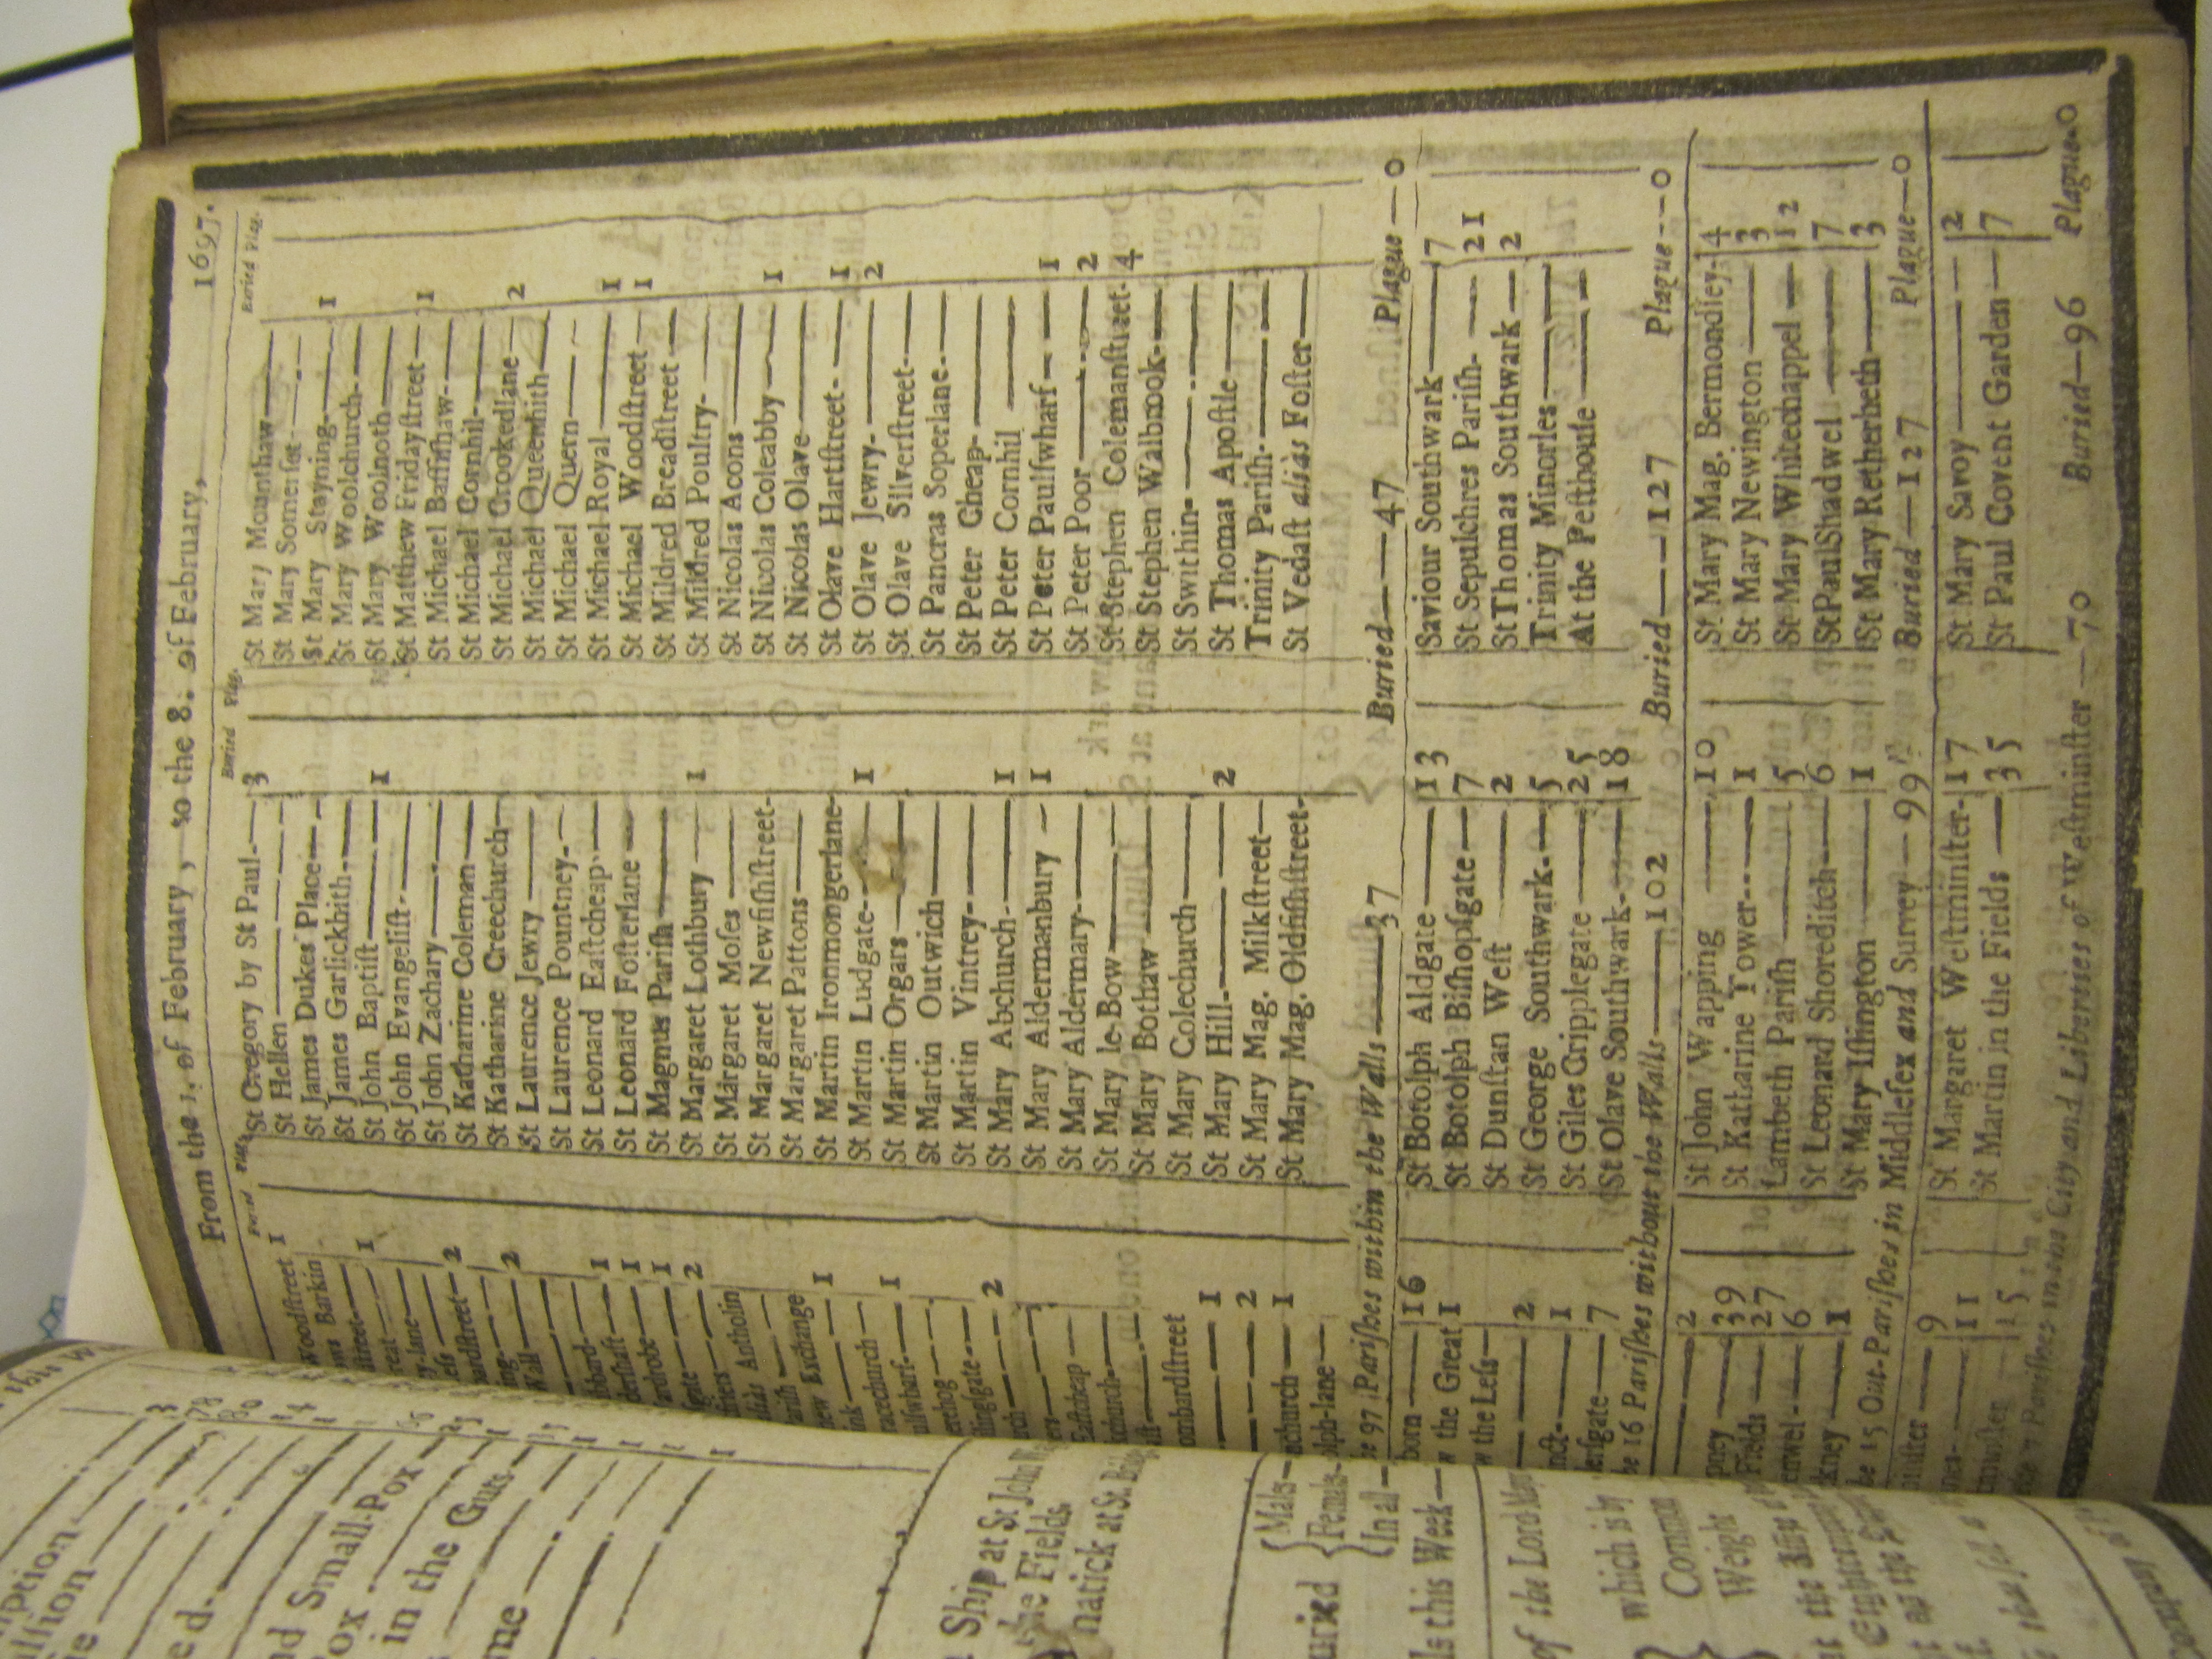 From the 1. of February, to the 8. of February, 1697.
Buried Plag.
Buried Plag.
Buried Plag.
Woodstreet 1
Barkin
street
1
reat
y-lane
ess 2
ardstreet
ing 2
Wall
bbard
dershaft 1
ardrobe 1
gate 1
2
Antholin
arish
new Exchange
ink 1
racechurch
ulswharf 1
erchog
lingsgate
rch 2
Eastcheap
kchurch
ombardstreet
1
2
echurch 1
olph-lane
St Gregory by St Paul 3
St Hellen
St James Dukes Place
St James Garlickhith
St John Baptist 1
St John Evangelist
St John Zachary
St Katharine Coleman
St Katharine Creechurch
St Laurence Jewry
St Laurence Pountney
St Leonard Eastcheap
St Leonard Fosterlane
St Magnus Parish
St Margaret Lothbury 1
St Margaret Moses
St Margaret Newfishstreet
St Margaret Pattons
St Martin Ironmongerlane
St Martin Ludgate 1
St Martin Orgars
St Martin Outwich
St Martin Vintrey
St Mary Abchurch 1
St Mary Aldermanbury 1
St Mary Aldermary
St Mary le Bow
St Mary Bothaw
St Mary Colechurch
St Mary Hill 2
St Mary Mag. Milkstreet
St Mary Mag. Oldfishstreet
St Mary Mounthaw
St Mary Somerset
St Mary Stayning 1
St Mary Woolchurch
St Mary Woolnoth
St Matthew Fridaystreet 1
St Michael Bassishaw
St Michael Cornhil
St Michael Crookedlane 2
St Michael Queenhith
St Michael Quern
St Michael Royal 1
St Michael Woodstreet 1
St Mildred Breadstreet
St Mildred Poultry
St Nicolas Acons
St Nicolas Coleabby 1
St Nicolas Olave
St Olave Hartstreet 1
St Olave Jewry 2
St Olave Silverstreet
St Pancras Soperlane
St Peter Cheap
St Peter Cornhil
St Peter Paulswharf 1
St Peter Poor 2
St Stephen Colemanstraet 4
St Stephen Walbrook
St Swithin
St Thomas Apostle
Trinity Parish
St Vedast aliàs Foster
97 Parishes within the Walls 37 Buried 47 Plague 0
born 16
w the Great 1
w the Less
2
nct 1
ersgate 7
St Botolph Aldgate 13
St Botolph Bishopsgate 7
St Dunstan West 2
St George Southwark 5
St Giles Cripplegate 25
St Olave Southwark 18
Saviour Southwark 7
St Sepulchres Parish 21
St Thomas Southwark 2
Trinity Minories
At the Pesthouse
16 Parishes without the Walls 102 Buried 127 Plague 0
2
pney 39
Fields 27
enwel 6
kney 1
St John Wapping 10
St Katharine Tower 1
Lambeth Parish 5
St Leonard Shoreditch 6
St Mary Islington 1
St Mary Mag. Bermondsey 4
St Mary Newington 3
St Mary Whitechappel 12
St Paul Shadwel 7
St Mary Retherheth 3
15 Out-Parishes in Middlesex and Surrey 99 Buried 127 Plague 0
9
11
15
St Margaret Westminster 17
St Martin in the Fields 35
St Mary Savoy 2
St Paul Covent Garden 7
Parishes in the City and Liberties of Westminster 70 Buried 96 Plague 0
nd Small-Pox
in the Guts
Ship at St John
the Fields
natick at St.
Males
Females
In all
this Week
of the Lord
which is by
Weight
Company of